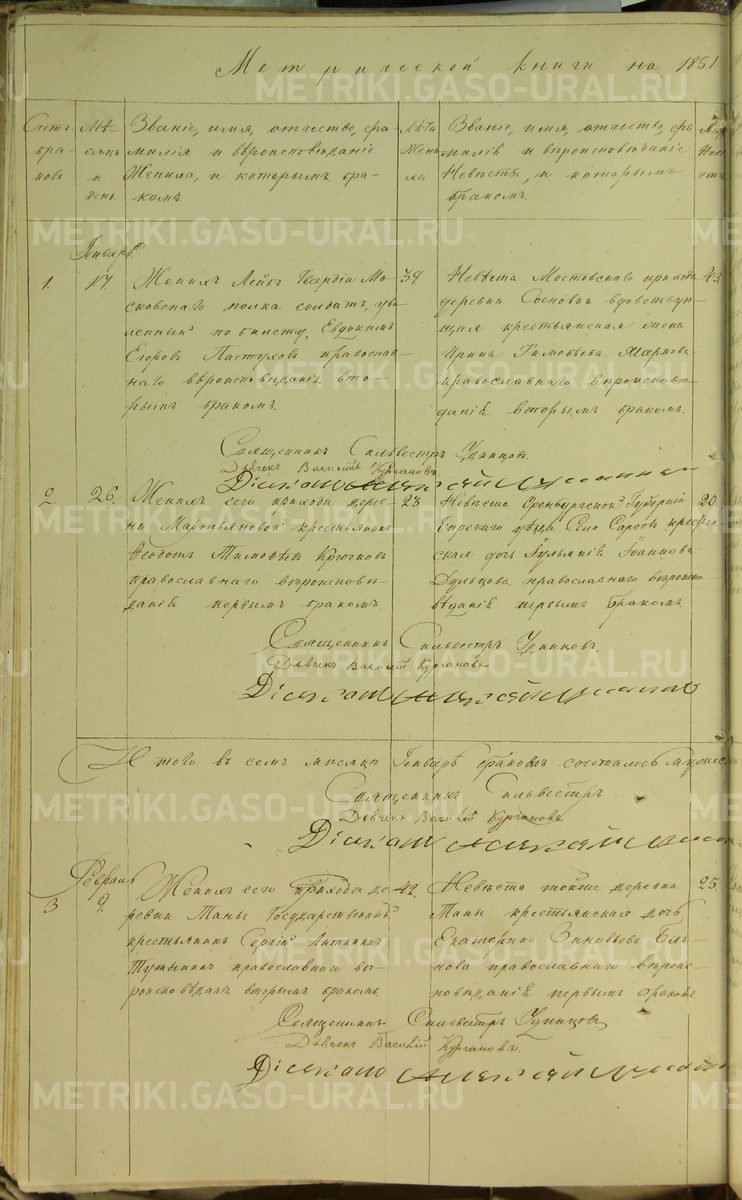 Метрической книги на 1851
Счетъ браковъ
Мѣсяцъ и день
Званіе, имя, отчество, фамилія и вѣроисповѣданіе Жениха, и которымъ бракомъ.
Лѣта Жениха
Званіе, имя, отчество, фамилія и вѣроисповѣданіе Невѣсты, и которымъ бракомъ.
Генварь
1.
17.
Женихъ Лейбъ Гвардіи Московскаго полка солдатъ, уволенный по билету, Евдокимъ Егоровъ Пастуховъ православнаго вѣроисповѣданія вторымъ бракомъ.
39
Невѣста Мостовскаго прихода
деревни Сосновки вдовствующая крестьянская жена
Ирина Тимофѣева Маркова
православнаго вѣроисповѣданія вторымъ бракомъ.
43.
Священникъ Сильвестръ Удинцовъ
Дьячекъ Василій Кургановъ
2.
26.
Женихъ сего прихода деревни Мартьяновой крестьянинъ
Ѳеодотъ Тимофѣевъ Крючковъ
православнаго вѣроисповѣданія первымъ бракомъ.
23
Невѣста Оренбургской Губерніи
уѣзда Село крестьянская дочь Іоаннова
православнаго вѣроисповѣданія первымъ бракомъ.
20.
Священникъ Сильвестръ Удинцовъ.
Дьячекъ Василій Кургановъ
Итого въ семъ мѣсяцѣ Генварѣ браковъ сочеталось
Священникъ Сильвестръ
Дьячекъ Василій Кургановъ
Февраль
3
9.
Женихъ сего прихода деревни Таны Государственный
крестьянинъ Сергій
православнаго вѣроисповѣданія вторымъ бракомъ
42.
Невѣста тойже деревни
Таны крестьянская дочь
Екатерина Зиновьева
православнаго вѣроисповѣданія первымъ бракомъ
25.
Священникъ Сильвестръ Удинцовъ
Дьячекъ Василій Кургановъ.
METRIKI.GASO-URAL.RU